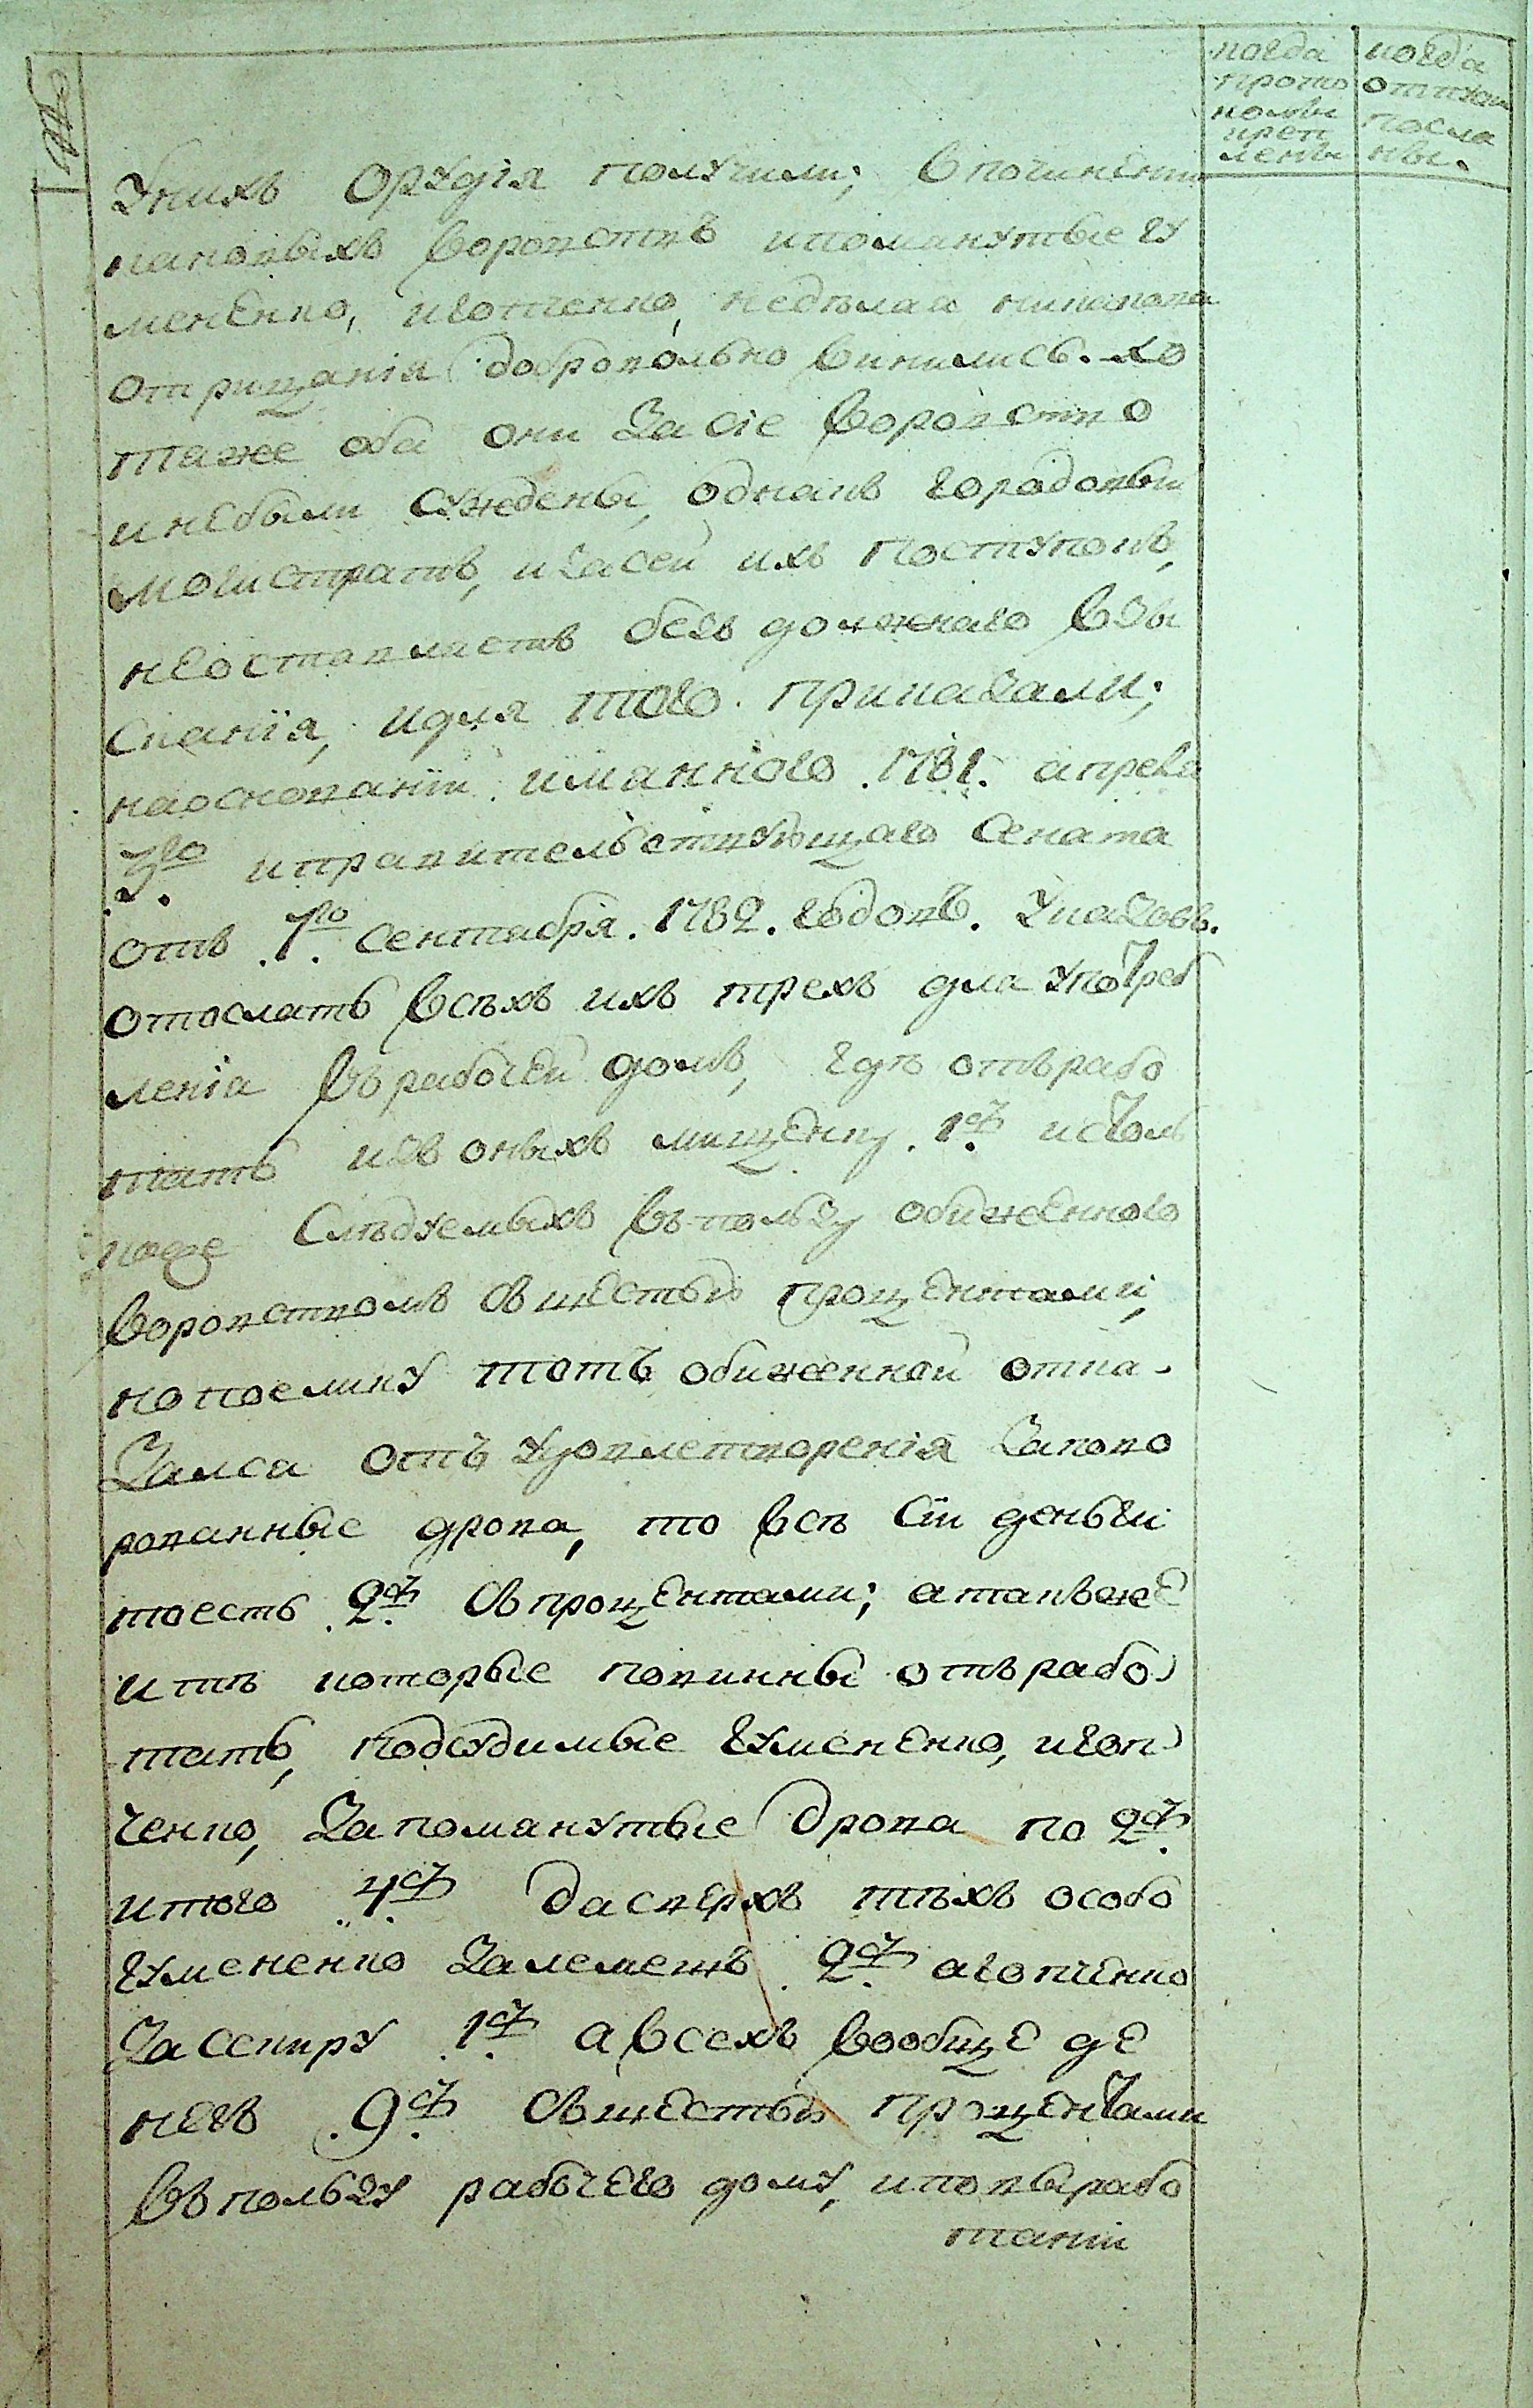 когда
прото
колы
креп
лены
когда
отпуски
посла
ны.
уних орудія получили; вπочиненіи
каковыхъ воровствъ ипомянутые гу
мененко, иговченко, недѣлая никакова
отрицанія добровольно винились. хо
таже оба они засіе воровство
инебыли суждены, однакъ городовый
могистратъ, изасей ихъ поступокъ,
неоставляетъ безъ должнаго взы
сканія, идля того приказали;
наоснованіи имяннаго .1781. апреля
3го иправительствующаго сената
отъ .1го сентября .1782. годовъ. указовъ.
отослать всѣхъ ихъ трехъ для употреб
ленія въ рабочей домъ, гдѣ отърабо
тать изъ оныхъ мищенку .1 истоль
коже слѣдуемыхъ въ ползу обиженного
воровствомъ съ шестью процентами,
но поелику тотъ обиженной отка-
зался отъ удовлетворенія заново
рованные дрова, то всѣ сіи деньги
тоесть .2. съ процентами; а такъже
и тѣ которые повинны отърабо-
тать, подсудимые гумененко, игов-
ченко, запомянутые дрова по 2
итого .4. дасверхъ тѣхъ особо
гумененко залемешъ .2. аговченко
засекиру .1. авсехъ вообще де
негъ .9. съ шестью процентами
въ ползу рабочего дому, ипо вырабо
таніи